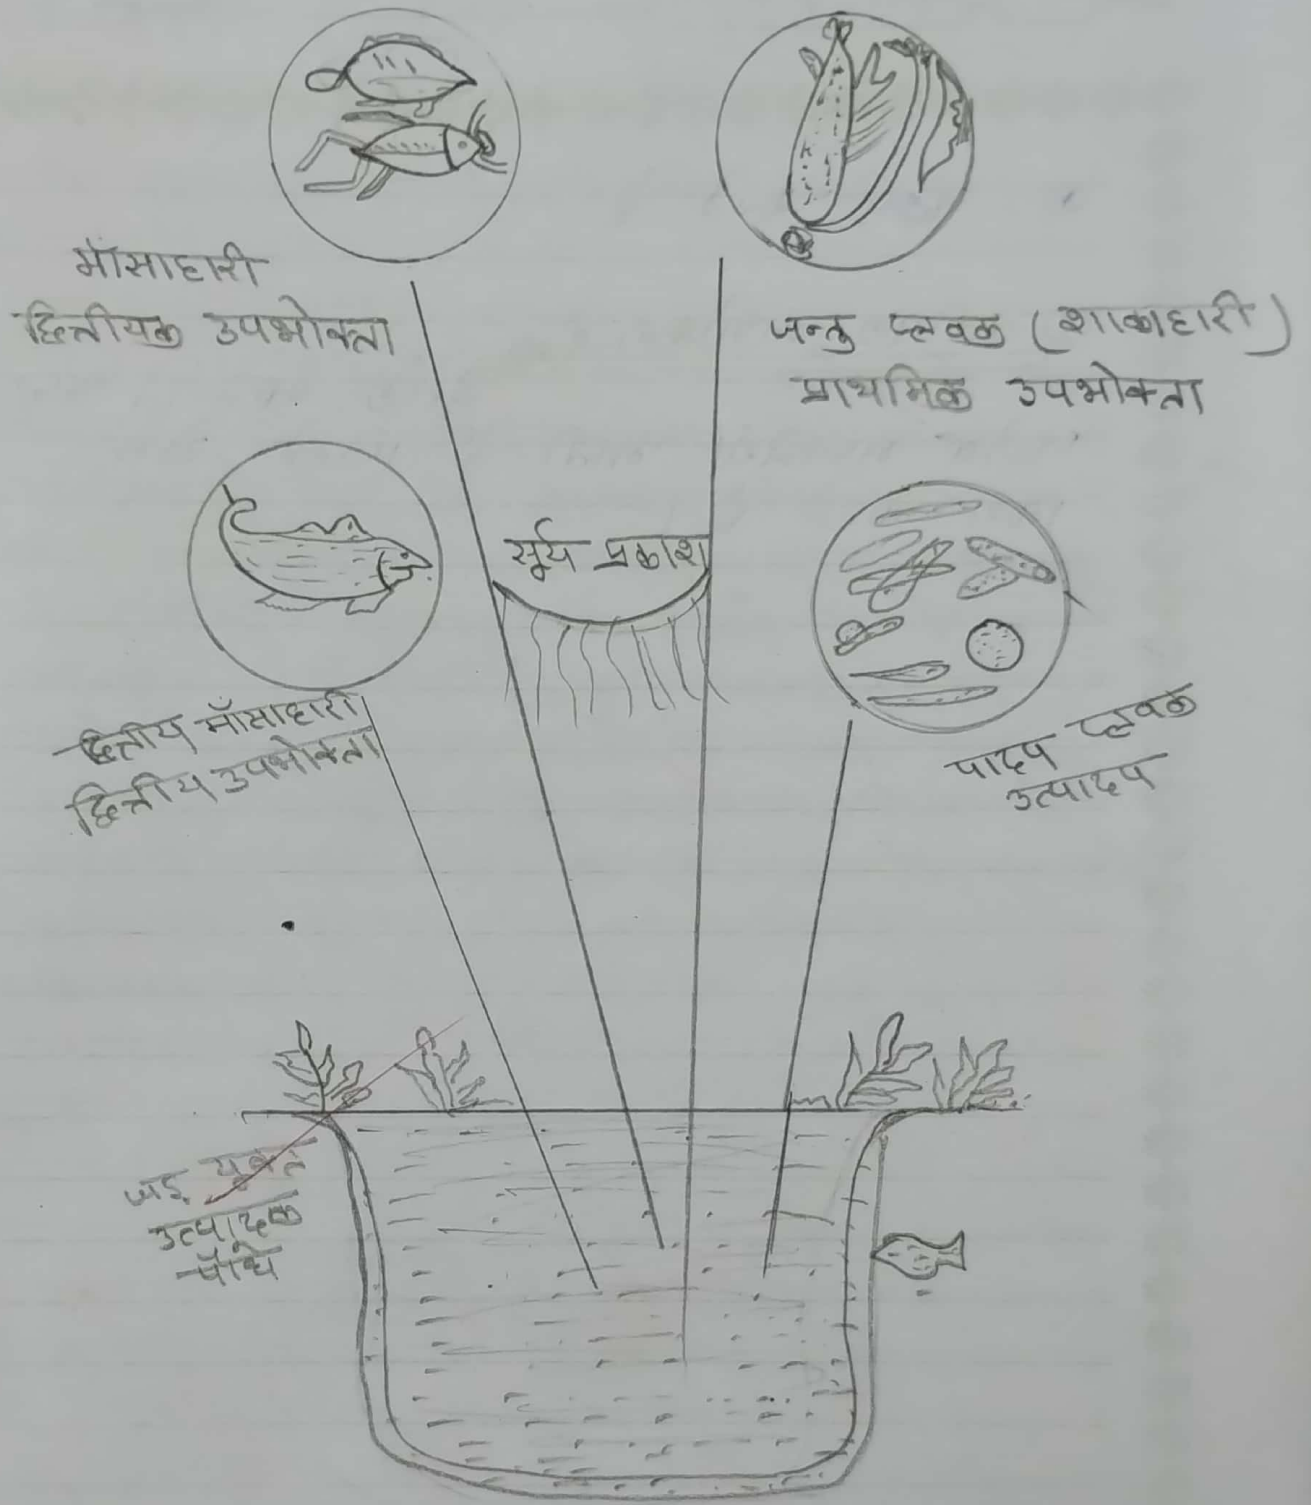 माँसाहारी
द्वित्तीयक उपभोक्ता
जन्तु प्लवक (शाकाहारी)
प्राथमिक उपभोक्ता
सूर्य प्रकाश
द्वित्तीय माँसाहारी
द्वित्तीय उपभोक्ता
पादप प्लवक
उत्पादप
जड़ युक्त
उत्पादक
पौधे